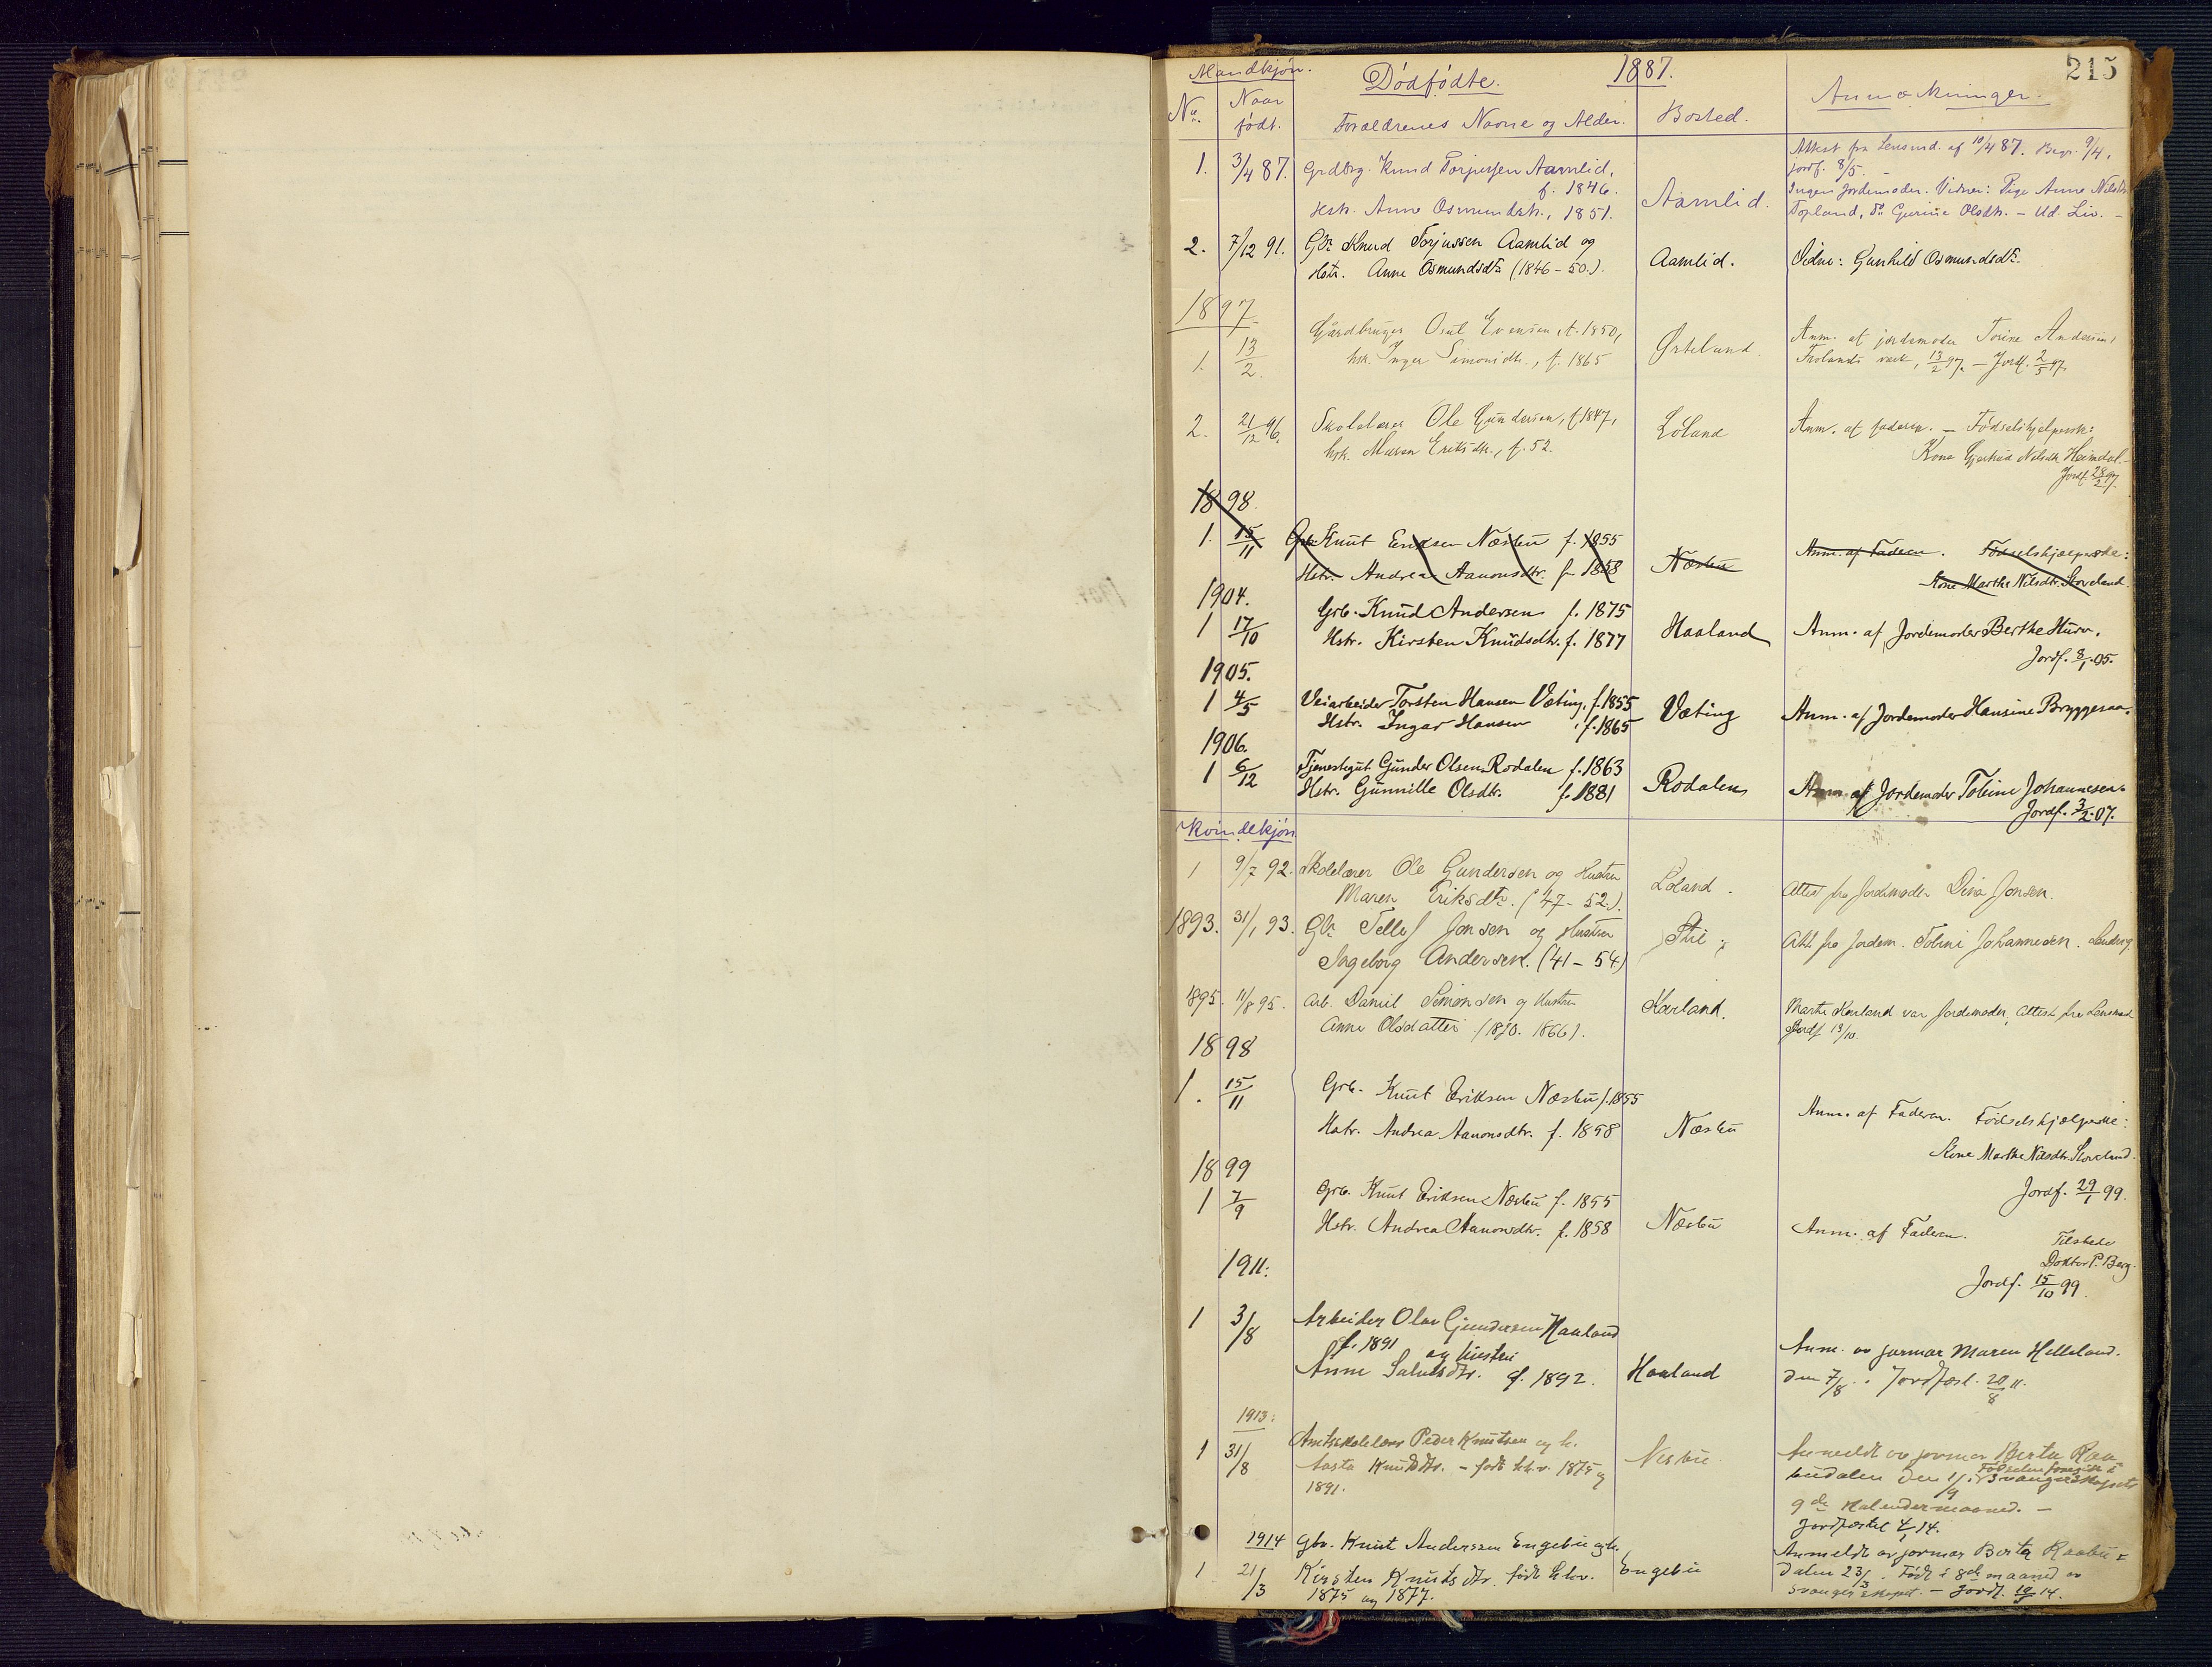 215
Mandkjøn.
Dødfødte.
1887.
Anmærkninger.
No.
Naar
født.
Forældrenes Navne og Alder.
Bosted.
1. 3/4 87. Grdbrg. Knud Torjussen Aamlid,
f. 1846.
Hstr. Anne Osmundsdtr., 1851.
Aamlid.
Attest fra Lensmd. af 10/4 87. Begr. 9/4,
jordf. 8/5.
Ingen Jordemoder. Vidner: Pige Anne Nilsdtr.
Topland, do Gurine Olsdtr. – Ud. Liv. –
2. 7/12 91. Gbr. Knud Torjussen Aamlid og
Hstr. Anne Osmundsdtr. (1846–50.).
Aamlid.
Vidne: Gunhild Osmundsdtr.
1897
1. 13/2. Gårdbruger Osul Evensen, f. 1850,
hstr. Inger Simonsdtr., f. 1865
Ørteland.
Anm. af jordemoder Torine Andersen,
Frolands værk, 13/2 97. – Jordf. 2/5 97.
2. 21/12 96. Skolelærer Ole Gundersen, f 1847,
hstr. Maren Eriksdtr., f. 52.
Løland
Anm. af faderen. – Fødselshjelpersk:
Kone Gjertrud Nilsdtr. Heimdal. –
Jordf. 28/2 97.
1898.
1. 15/11 Grb. Knut Eriksen Næsbu f. 1855
Hstr. Andrea Aanonsdtr. f. 1858
Næsbu
Anm. af Faderen. Fødselshjælperske:
Kone Marthe Nilsdtr. Skoveland.
1904.
1 17/10 Grb. Knud Andersen f. 1875
Hstr. Kirsten Knudsdtr. f. 1877
Haaland
Anm. af Jordemoder Berthe Hurv.
Jordf. 8/1 05.
1905.
1 4/5 Veiarbeider Torsten Hansen Væting, f. 1855
Hstr. Ingar Hansen f. 1865
Væting
Anm. af Jordemoder Hansine Bryggesaa.
1906.
1 6/12 Tjenestegut Gunder Olsen Rodalen f. 1863
Hstr. Gunnille Olsdtr. f. 1881
Rodalen
Anm. af Jordemoder Tobine Johannesen.
Jordf. 3/2. 07.
Kvindekjøn
1 9/7 92. Skolelærer Ole Gundersen og Hustru
Maren Eriksdtr. (47–52.).
Løland.
Attest fra Jordemoder Dina Jonsen.
1893. 31/1 93. Gbr. Tellef Jonsen og Hustru
Ingeborg Andersen. (41–54)
Att. fra Jordem. Tobine Johannesen.
1895. 11/8 95. Arb. Daniel Simonsen og Hustru
Anne Olsdatter (1870. 1866).
Karland.
Marte Karland var Jordemoder, Attest fra Lensmand
Jordf 13/10.
1898
1. 15/11 Grb. Knut Eriksen Næsbu f. 1855
Hstr. Andrea Aanonsdtr. f. 1858
Næsbu
Anm. af Faderen. Fødselshjælperske:
Kone Marthe Nilsdtr. Skoveland.
Jordf. 29/1 99.
1899
1 7/9 Grb. Knut Eriksen Næsbu f. 1855
Hstr. Andrea Aanonsdtr. f. 1858
Næsbu
Anm. af Faderen.
Tilstede
Doktor P. Berg.
Jordf. 15/10 99.
1911:
1 3/8 Arbeider Olav Gundersen Haaland
f. 1891 og hustru
Anne Salvesdtr. f. 1892.
Haaland
Anm. av jormor Maren Helleland.
den 7/8. Jordfæst. 20/8 11.
1913:
1 31/8 Amtsskolelærer Peder Knutsen og h.
Aasta Knutsdtr. – født hhv. 1875 og
1891.
Nesbu
Anmeldt av jormor Berta Raa-
budalen den 1/9. Fødselen foregik i
svangerskapets
9de kalendermaaned. –
Jordfæstet 4/1 14.
1914
1 21/3 Gbr. Knut Anderssen Engebu og h.
Kirsten Knutsdtr. født hhv.
1875 og 1877.
Engebu
Anmeldt av jormor Berta Raabu=
dalen 23/3. Født i 8de maaned av
svangerskapet. – Jordf. 14.